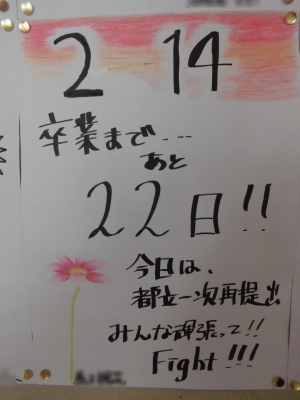 2 14
卒業まで...
あと
22日!!
今日は、
都立一次再提出
みんな頑張って!!
Fight!!!